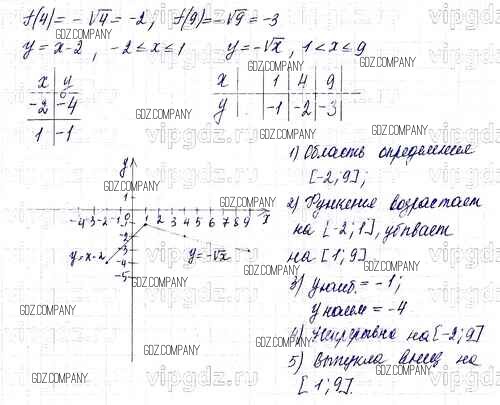 f(4) = -√4 = -2; f(9) = -√9 = -3
y = x-2, -2 ≤ x ≤ 1 y = -√x, 1 < x ≤ 9
x | y
-2 | -4
1 | -1
x | | 1 | 4 | 9
y | | -1 | -2 | -3
y
1
-4 -3 -2 -1 0 1 2 3 4 5 6 7 8 9 x
-1
-2
-3
-4
-5
y = x-2
y = -√x
1) Область определения
[-2; 9];
2) Функция возрастает
на [-2; 1], убывает
на [1; 9]
3) y наиб. = -1;
y наим = -4
4) Непрерывна на [-2; 9]
5) Выпукла вниз на
[1; 9].
GDZ.COMPANY
vipgdz.ru